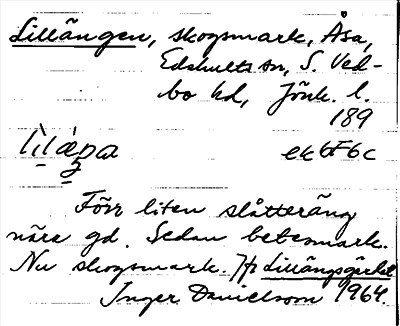 Lillängen, skogsmark, Åsa,
Edshults sn, S. Ved-
bo hd, Jönk. l.
189
ek 6F 6c
Förr liten slåtteräng
nära gd. Sedan betesmark.
Nu skogsmark. Jfr Lillängsgärdet
Inger Danielsson 1964.